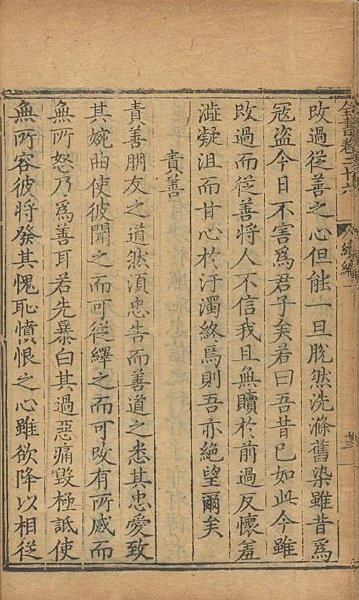 改過從善之心但能一旦脫然洗滌舊染雖昔爲
寇盜今日不害爲君子矣若曰吾昔已如此今雖
改過而從善將人不信我且無贖於前過反懷羞
澁凝沮而甘心於汙濁終焉則吾亦絕望爾矣
責善
責善朋友之道然須忠告而善道之悉其忠愛致
其婉曲使彼聞之而可從繹之而可改有所感而
無所怒乃爲善耳若先暴白其過惡痛毀極詆使
無所容彼將發其愧恥憤恨之心雖欲降以相從
全書卷二十六
續編一